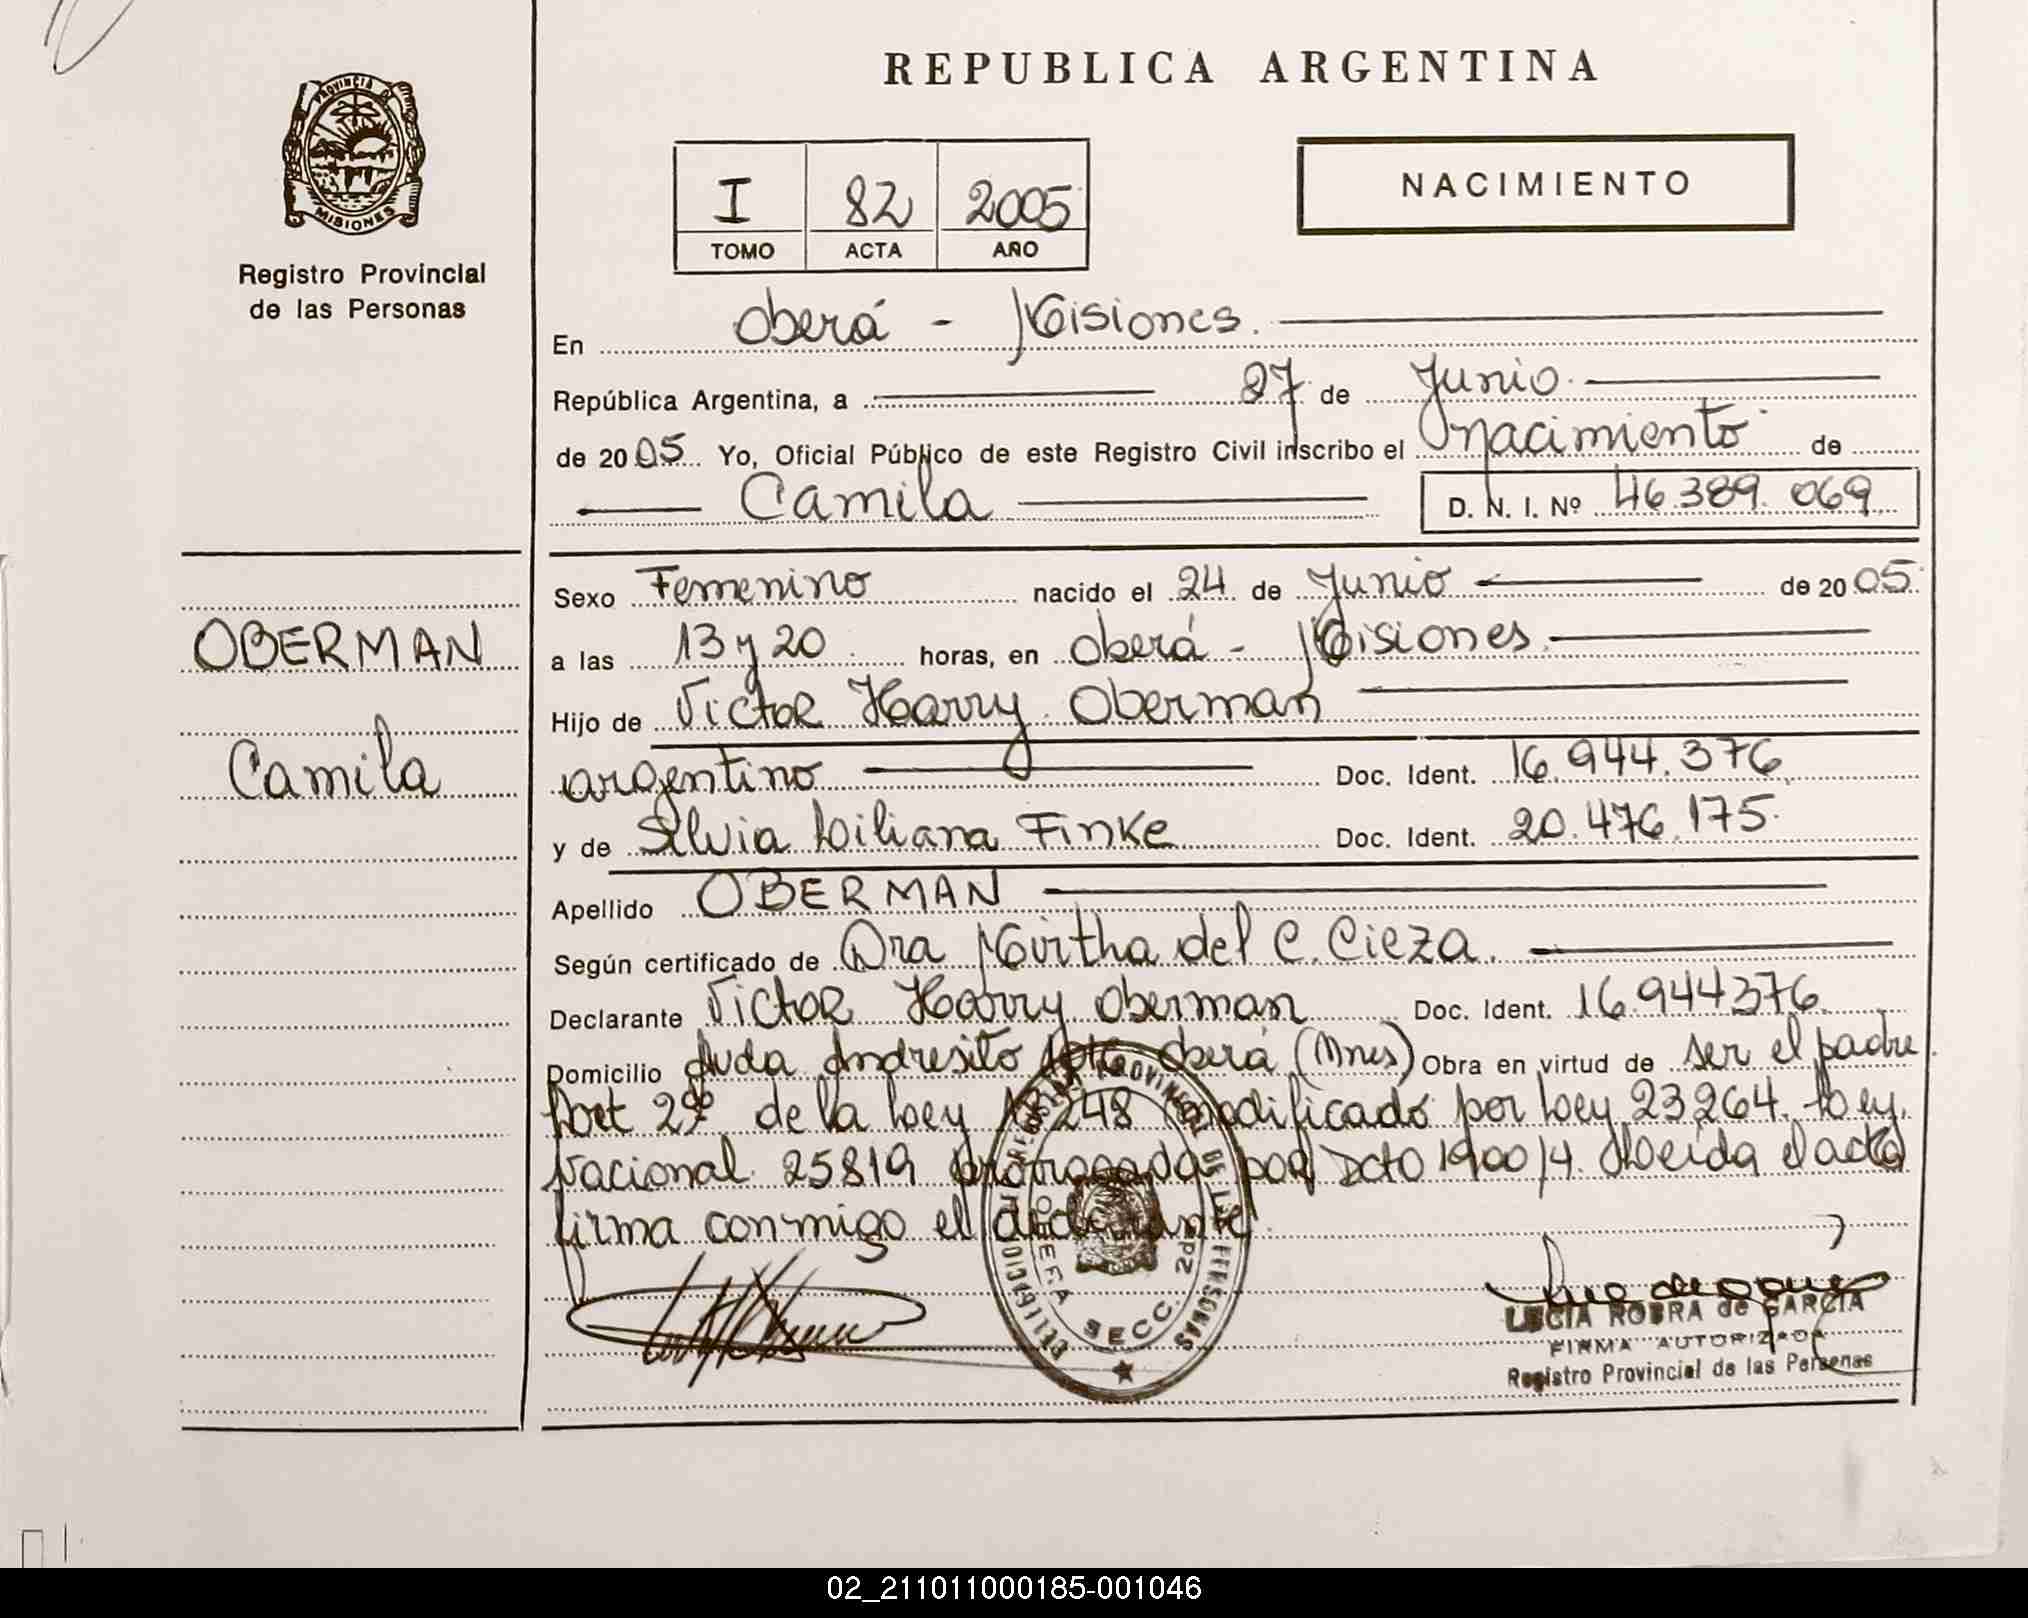 REPUBLICA ARGENTINA
PROVINCIA D
MISIONES
Registro Provincial
de las Personas
I 82 2005
TOMO ACTA AÑO
NACIMIENTO
En Oberá - Misiones.
República Argentina, a 27 de Junio.
de 2005 Yo, Oficial Público de este Registro Civil inscribo el nacimiento de
Camila D. N. I. Nº 46.389.069
Sexo Femenino nacido el 24 de Junio de 2005
OBERMAN
a las 13 y 20 horas, en Oberá - Misiones.
Hijo de Victor Harry Oberman
Camila
argentino Doc. Ident. 16.944.376
y de Silvia Liliana Finke Doc. Ident. 20.476.175.
Apellido OBERMAN
Según certificado de Dra Mirtha del C. Cieza.
Declarante Victor Harry Oberman Doc. Ident. 16.944376.
Domicilio Avda Andresito Oberá (Mnes) Obra en virtud de ser el padre.
Art 2º de la Ley 18248 modificado por Ley 23264. Ley.
Nacional 25819 prorrogada por Dcto 1900/4. Leída el acta
firma conmigo el declarante.
SECC. 2da
LUCIA ROBRA de GARCIA
FIRMA AUTORIZADA
Registro Provincial de las Personas
02_211011000185-001046